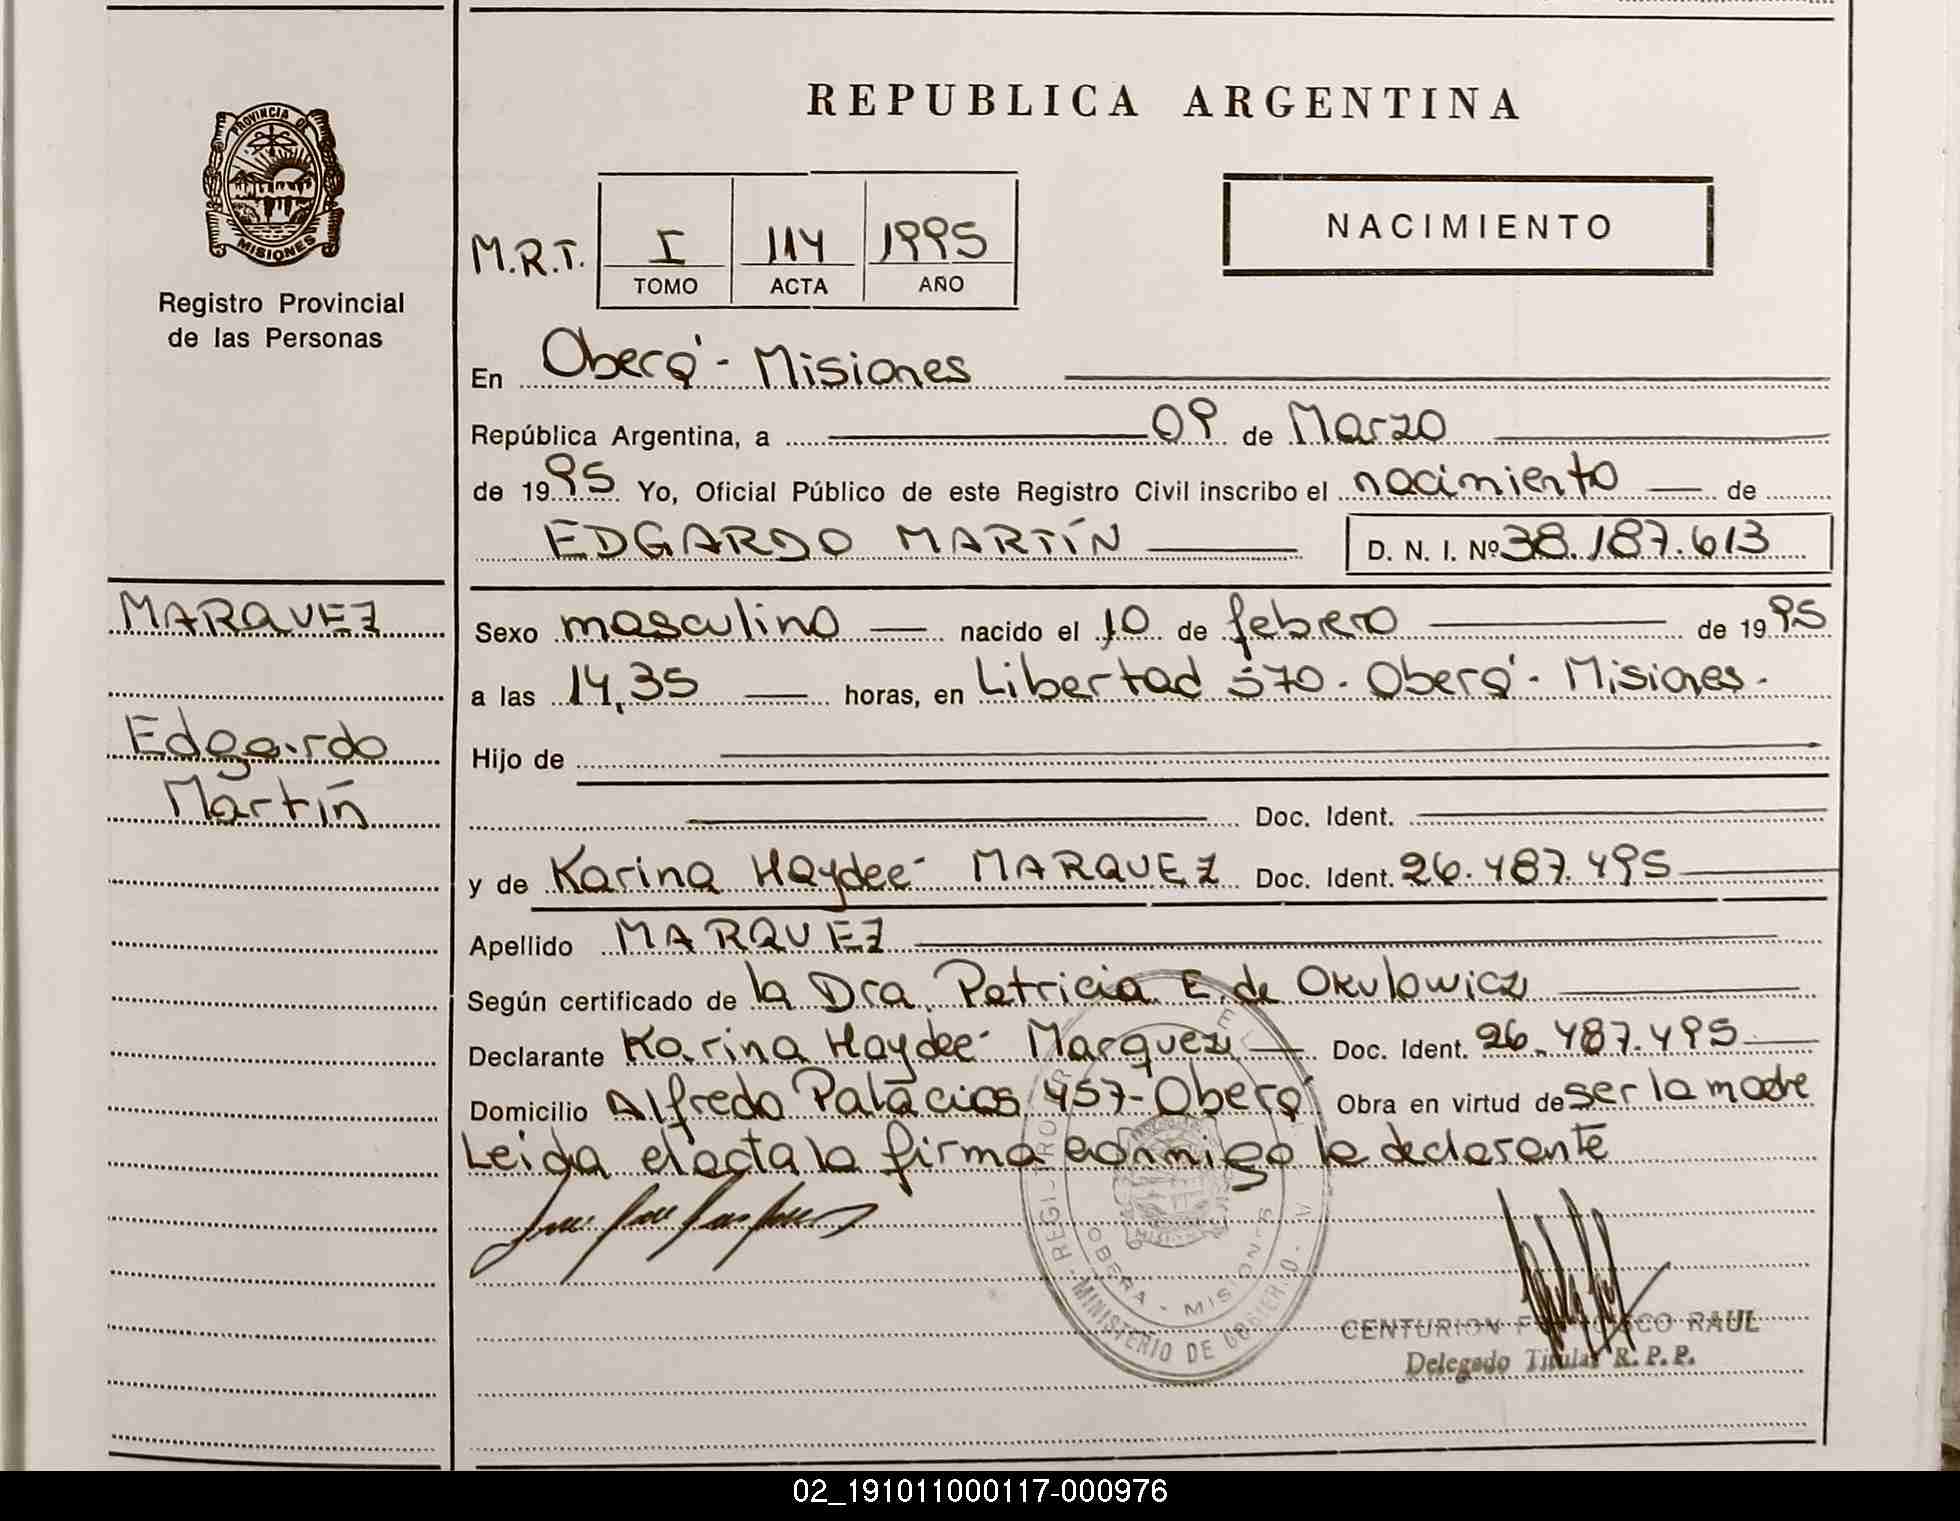 REPUBLICA ARGENTINA
PROVINCIA DE
MISIONES
Registro Provincial
de las Personas
M.R.T. I 114 1995
TOMO ACTA AÑO
NACIMIENTO
En Oberá - Misiones
República Argentina, a 09 de Marzo
de 1995 Yo, Oficial Público de este Registro Civil inscribo el nacimiento de
EDGARDO MARTÍN D. N. I. Nº 38.187.613
MARQUEZ
Edgardo
Martín
Sexo masculino nacido el 10 de febrero de 1995
a las 14,35 horas, en Libertad 570 - Oberá - Misiones -
Hijo de
Doc. Ident.
y de Karina Haydeé MARQUEZ Doc. Ident. 26.487.495
Apellido MARQUEZ
Según certificado de la Dra. Patricia E. de Okulowicz
Declarante Karina Haydeé Marquez Doc. Ident. 26.487.495
Domicilio Alfredo Palacios 457 - Oberá Obra en virtud de ser la madre
Leida el acta la firma conmigo la declarante
OBERA - MISIONES
MINISTERIO DE GOBIERNO
CENTURION FRANCISCO RAUL
Delegado Titular R.P.P.
02_191011000117-000976